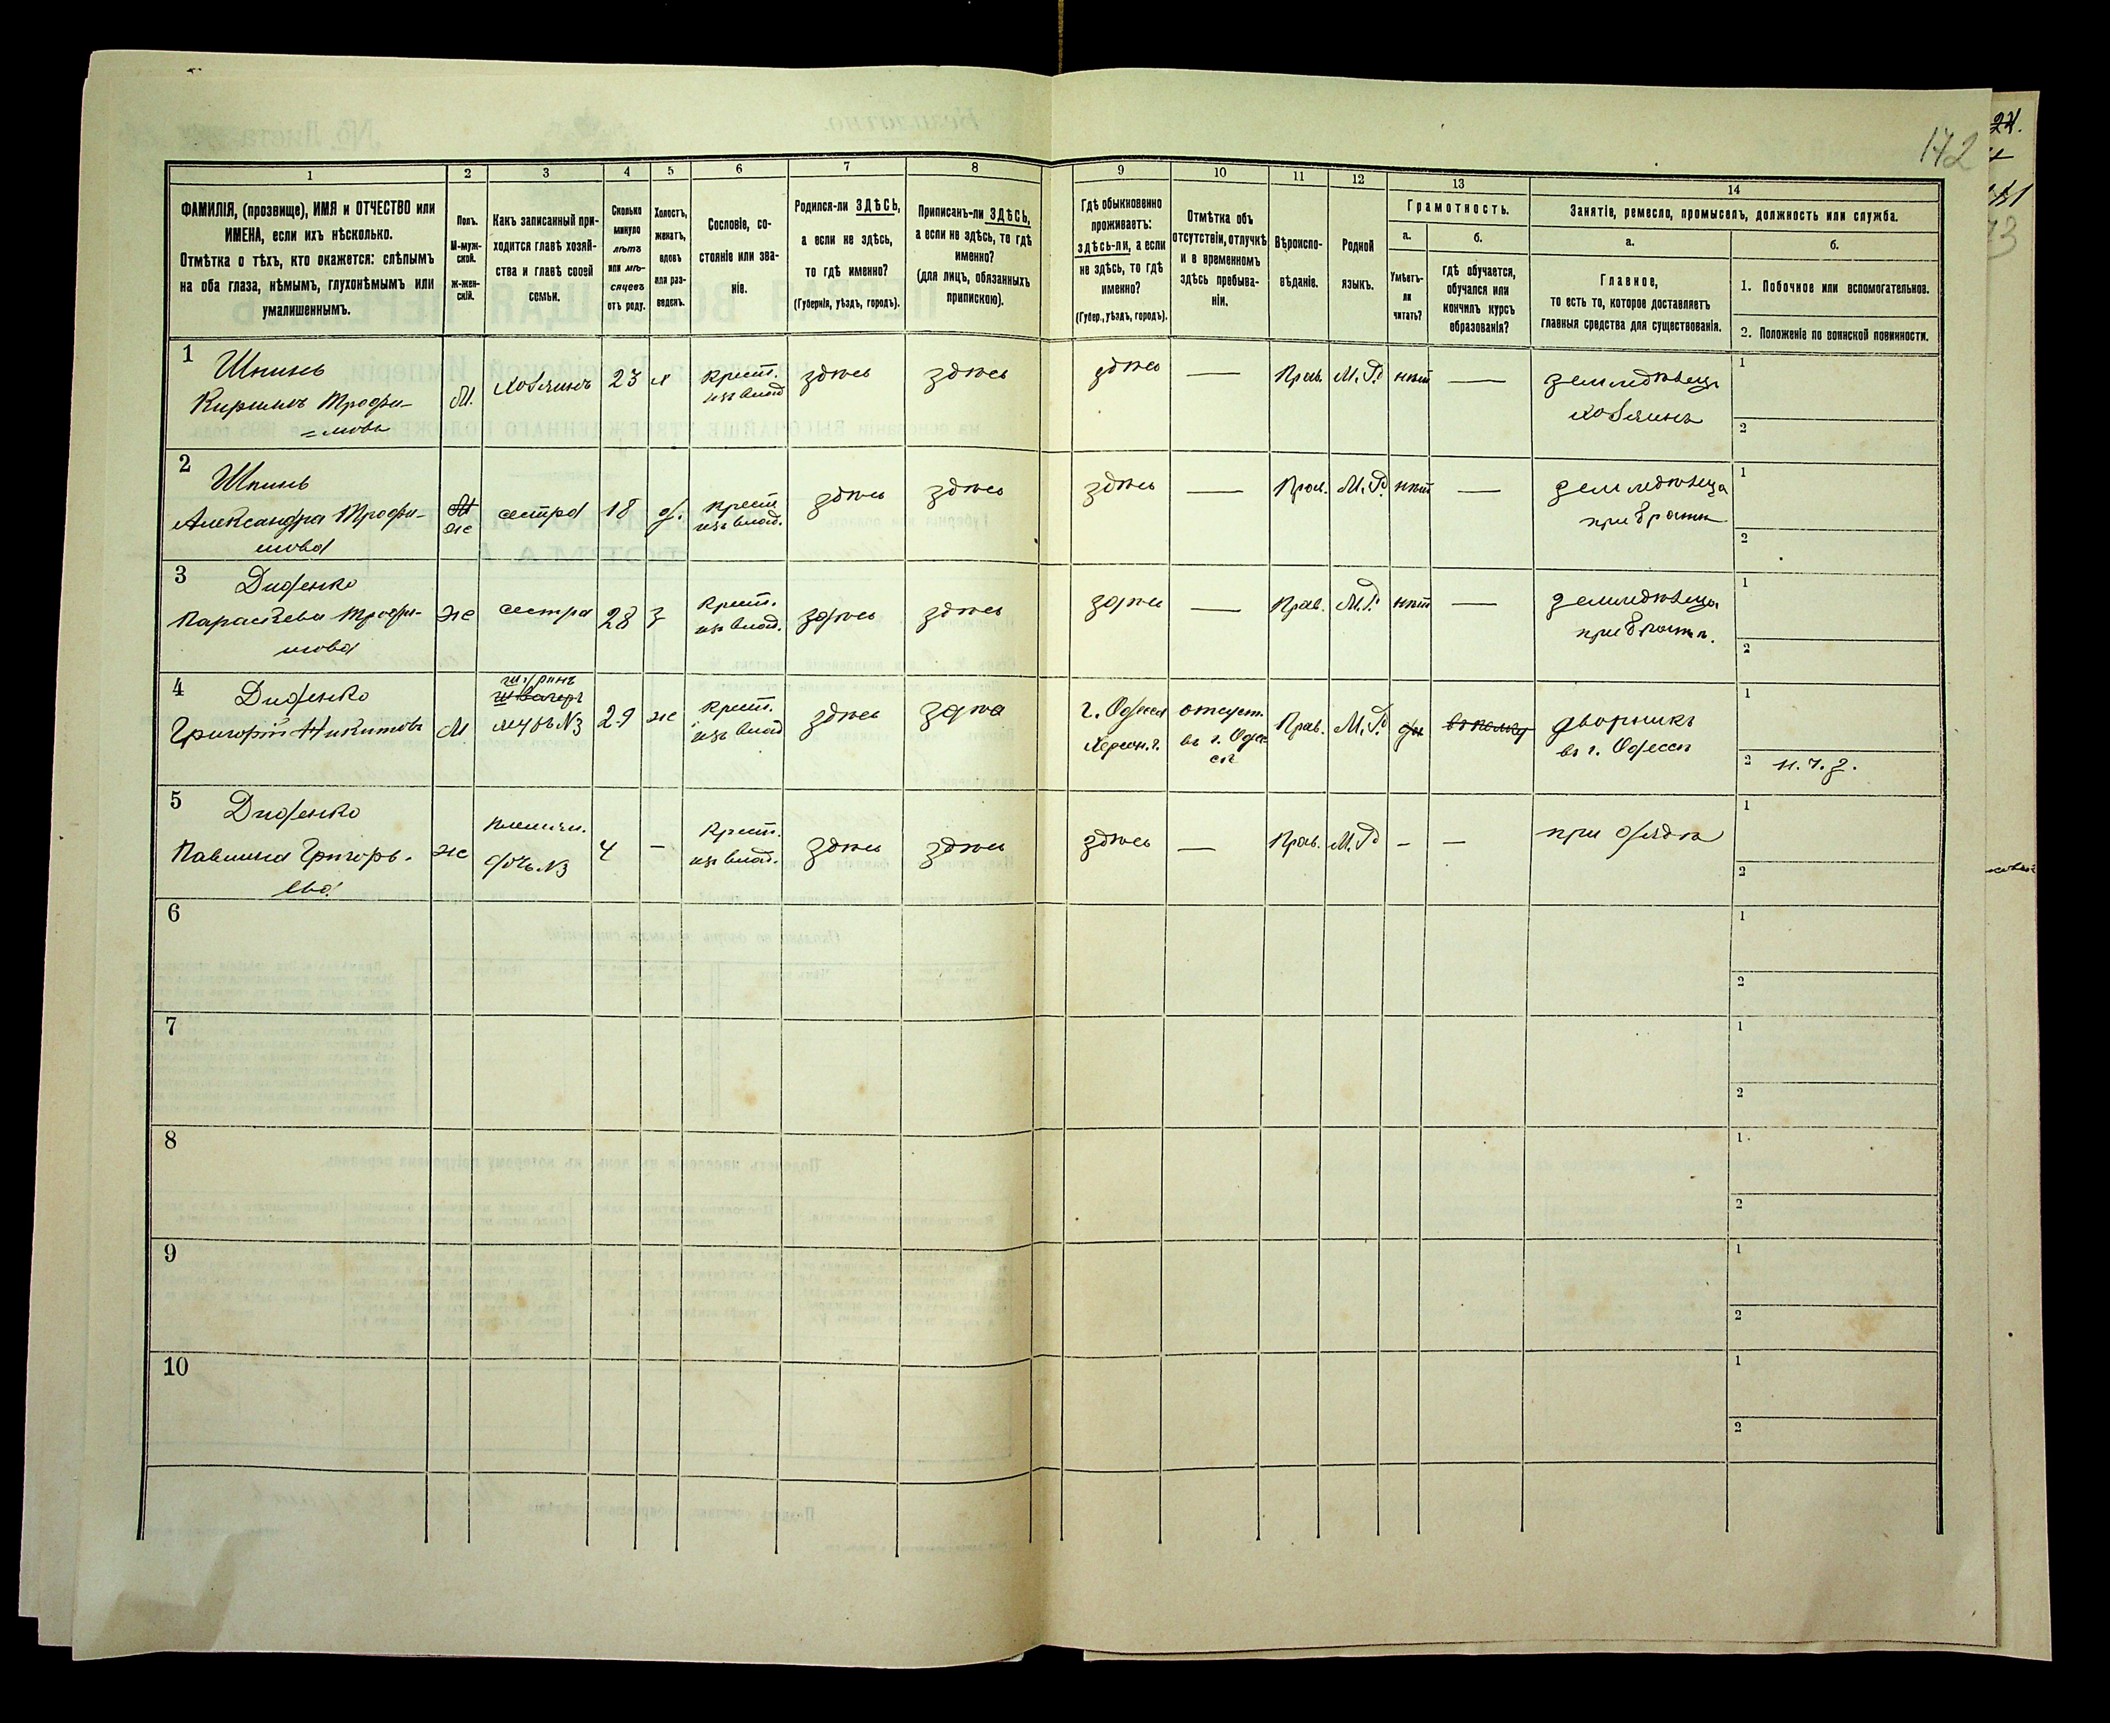 142
1
2
3
4
5
6
7
8
9
10
11
12
13
14
ФАМИЛІЯ, (прозвище), ИМЯ и ОТЧЕСТВО или
ИМЕНА, если ихъ нѣсколько.
Отмѣтка о тѣхъ, кто окажется: слѣпымъ
на оба глаза, нѣмымъ, глухонѣмымъ или
умалишеннымъ.
Полъ.
М-муж-
ской.
Ж-жен-
скій.
Какъ записанный при-
ходится главѣ хозяй-
ства и главѣ своей
семьи.
Сколько
минуло
лѣтъ
или мѣ-
сяцевъ
отъ роду.
Холостъ,
женатъ,
вдовъ
или раз-
веденъ.
Сословіе, со-
стояніе или зва-
ніе.
Родился-ли ЗДѢСЬ,
а если не здѣсь,
то гдѣ именно?
(Губернія, уѣздъ, городъ).
Приписанъ-ли ЗДѢСЬ,
а если не здѣсь, то гдѣ
именно?
(для лицъ, обязанныхъ
припискою).
Гдѣ обыкновенно
проживаетъ:
здѣсь-ли, а если
не здѣсь, то гдѣ
именно?
(Губер., уѣздъ, городъ).
Отмѣтка объ
отсутствіи, отлучкѣ
и о временномъ
здѣсь пребыва-
ніи.
Вѣроиспо-
вѣданіе.
Родной
языкъ.
Грамотность.
а.
Умѣетъ-
ли
читать?
б.
Гдѣ обучается,
обучался или
кончилъ курсъ
образованія?
Занятіе, ремесло, промыселъ, должность или служба.
а.
Главное,
то есть то, которое доставляетъ
главныя средства для существованія.
б.
1. Побочное или вспомогательное.
2. Положеніе по воинской повинности.
1
Шпинь
Кирилъ Трофи-
=мовъ
М.
Хозяинъ
23
х
Крест.
изъ влад
здѣсь
здѣсь
здѣсь
—
Прав.
М.Р.
нѣт
—
земледѣлецъ
хозяинъ
1
2
2
Шпинь
Александра Трофи-
мова
М
Ж
сестра
18
д.
Крест
изъ влад.
здѣсь
здѣсь
здѣсь
—
Прав.
М.Р.
нѣт
—
земледѣлица
при братѣ
1
2
3
Диденко
Парасѣева Трофи-
мова
Ж
сестра
28
з
Крест.
изъ влад.
здѣсь
здѣсь
здѣсь
—
Прав.
М.Р.
нѣт
—
земледѣлица
при братѣ.
1
2
4
Диденко
Григорій Никитовъ
М
мужъ N3
29
ж
Крест.
изъ влад
здѣсь
здѣсь
г. Одесса
Херсон. г.
отсут.
въ г. Одес
сѣ
Прав.
М.Р.
да
дворникъ
въ г. Одессѣ
1
2 н.ч.з.
5
Диденко
Павлина Григорь-
ева
Ж
племян.
дочь N3
4
–
Крест.
изъ влад.
здѣсь
здѣсь
здѣсь
—
Прав.
М.Р
–
–
при дядѣ
1
2
6
1
2
7
1
2
8
1
2
9
1
2
10
1
2